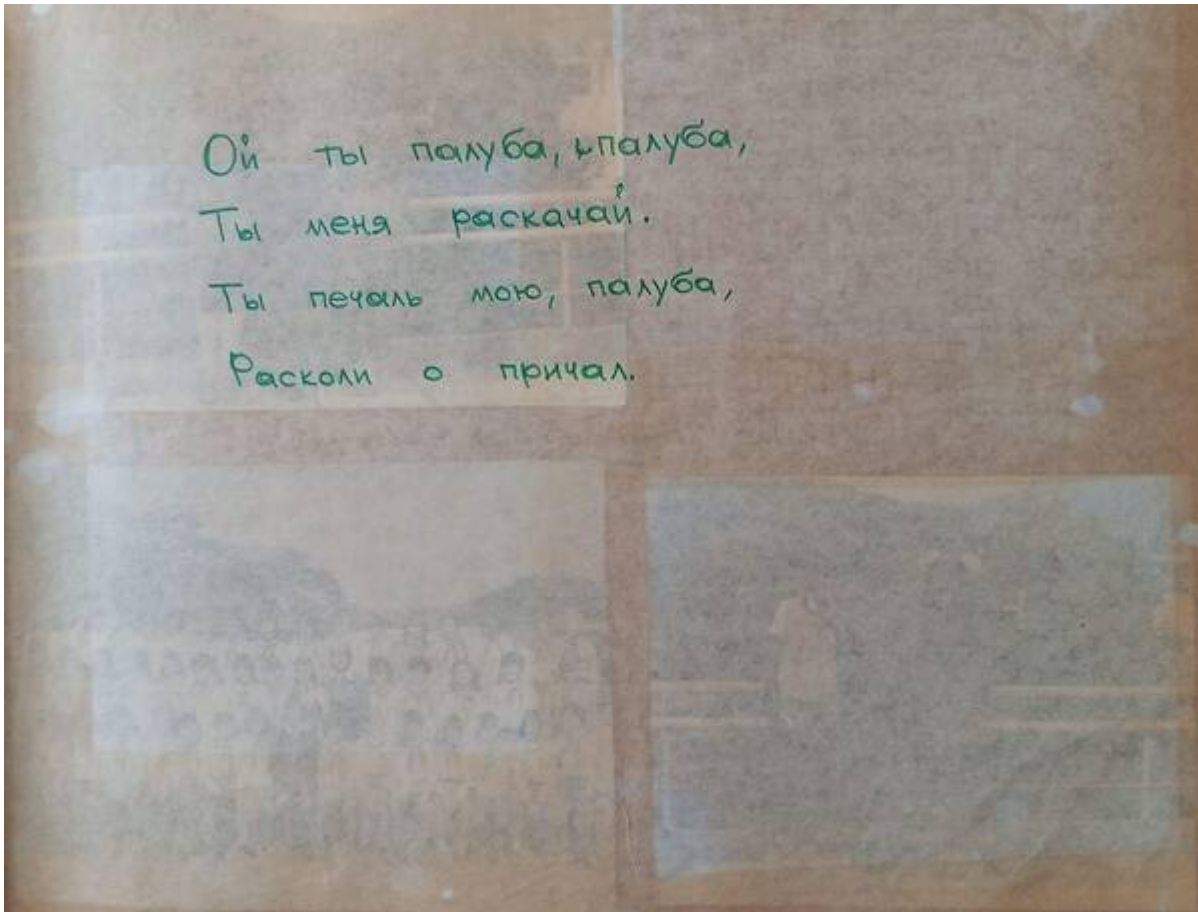 Ой ты палуба, палуба,
Ты меня раскачай.
Ты печаль мою, палуба,
Расколи о причал.